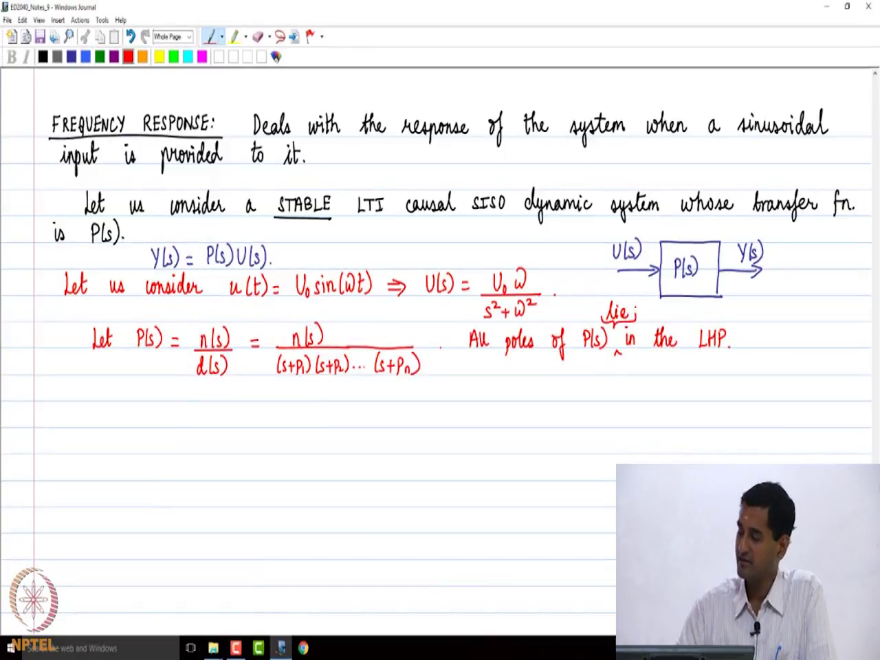 ED2040_Notes_9 - Windows Journal
File Edit View Insert Actions Tools Help
Whole Page
B I
FREQUENCY RESPONSE: Deals with the response of the system when a sinusoidal
input is provided to it.
Let us consider a STABLE LTI causal SISO dynamic system whose transfer fn
is P(s).
Y(s) = P(s)U(s).
U(s) P(s) Y(s)
Let us consider u(t) = U₀ sin(ωt) ⇒ U(s) = U₀ ω / s² + ω² .
Let P(s) = n(s) / d(s) = n(s) / (s+p₁)(s+p₂)... (s+pₙ) . All poles of P(s) lie in the LHP.
NPTEL
the web and Windows